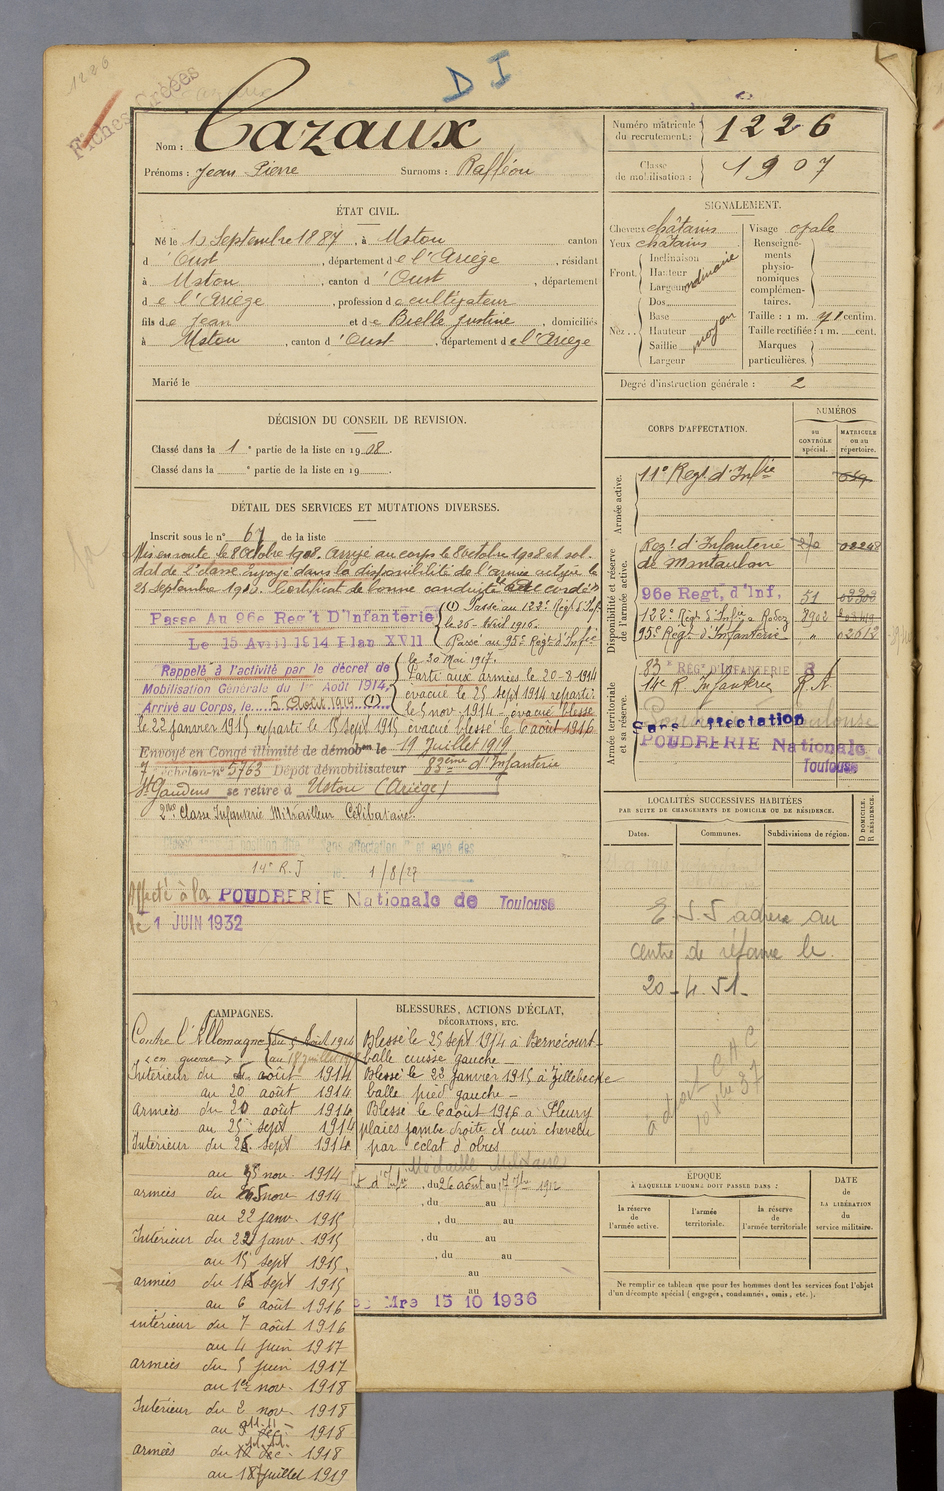 1226
Fiches Créées
D I
Nom : Cazaux
Prénoms : Jean Pierre Surnoms : Rafféou
Numéro matricule du recrutement : 1226
Classe de mobilisation : 1907
ÉTAT CIVIL.
Né le 10 Septembre 1887, à Ustou canton
d'Oust, département de l'Ariège, résidant
à Ustou, canton d'Oust, département
de l'Ariège, profession de cultivateur
fils de Jean et de Bielle Justine, domiciliés
à Ustou, canton d'Oust, département de l'Ariège
Marié le
SIGNALEMENT.
Cheveux châtains
Yeux châtains
Front. Inclinaison
Hauteur
Largeur ordinaire
Nez. Dos
Base
Hauteur moyen
Saillie
Largeur
Visage ovale
Renseignements physionomiques complémentaires.
Taille : 1 m. 71 centim.
Taille rectifiée : 1 m. cent.
Marques particulières.
Degré d'instruction générale : 2
DÉCISION DU CONSEIL DE REVISION.
Classé dans la 1e partie de la liste en 1908.
Classé dans la e partie de la liste en 19
CORPS D'AFFECTATION.
NUMÉROS
au CONTRÔLE spécial.
MATRICULE ou au répertoire.
Armée active.
11e Regt d'Infie
Disponibilité et réserve de l'armée active.
Regt d'Infanterie de Montauban
96e Regt, d'Inf. 51
122e Regt d'Infie Rodez 8902
95e Regt d'Infanterie "
Armée territoriale et sa réserve.
83e RÉGt D'INFANTERIE R
14e R. Infanterie R A
Sans affectation
POUDRERIE Nationale
Toulouse
DÉTAIL DES SERVICES ET MUTATIONS DIVERSES.
Inscrit sous le n° 67 de la liste
Mis en route le 8 octobre 1908. Arrivé au corps le 8 octobre 1908 et sol-
dat de 2e classe. Envoyé dans la disponibilité de l'armée active le
25 Septembre 1910. Certificat de bonne conduite "accordé"
Passe Au 96e Reg't D'Infanterie
Le 15 Avril 1914 Plan XVII
(1) Passé au 122e Regt d'Inf
le 26 Avril 1916.
Passé au 95e Regt d'Infie
le 30 Mai 1917.
Rappelé à l'activité par le décret de
Mobilisation Générale du 1er Août 1914,
Arrivé au Corps, le 5 Août 1914 (1)
Parti aux armées le 20-8-1914
évacué le 25 sept 1914 reparti
le 5 nov. 1914 - évacué blessé
le 22 janvier 1915 reparti le 15 sept 1915 évacué blessé le 6 août 1916
Envoyé en Congé illimité de démobon le 19 Juillet 1919
échelon n° 5763 Dépôt démobilisateur 83ème d'Infanterie
St Gaudens se retire à Ustou (Ariège)
2me Classe Infanterie Mitrailleur Célibataire.
14e R.I 1/8/27
Affecté à la POUDRERIE Nationale de Toulouse
le 1 JUIN 1932
LOCALITÉS SUCCESSIVES HABITÉES
PAR SUITE DE CHANGEMENTS DE DOMICILE OU DE RÉSIDENCE.
Dates. Communes. Subdivisions de région.
D DOMICILE. R RÉSIDENCE.
centre de réforme le
20-4-51-
CAMPAGNES.
Contre l'Allemagne du 5 Août 1914
« en guerre » au 18 juillet 1919
Intérieur du 5 août 1914
au 20 août 1914
Armées du 20 août 1914
au 25 sept 1914
Intérieur du 26 sept 1914
au 5 nov 1914
armées du 5 nov 1914
au 22 janv. 1915
Intérieur du 22 janv. 1915
au 15 sept 1915.
armées du 15 sept 1915
au 6 août 1916
intérieur du 7 août 1916
au 4 juin 1917
armées du 5 juin 1917
au 1er nov. 1918
Intérieur du 2 nov. 1918
au 1918
armées du 1918
au 18 juillet 1919
BLESSURES, ACTIONS D'ÉCLAT,
DÉCORATIONS, ETC.
Blessé le 25 sept 1914 à Bernécourt
balle cuisse gauche -
Blessé le 22 janvier 1915 à Zillebecke
balle pied gauche -
Blessé le 6 août 1916 à Fleury
plaies jambe droite et cuir chevelu
par éclat d'obus
Médaille Militaire
du 26 août au 17 7bre 1912
, du au
, du au
, du au
, du au
au
au
Mre 15 10 1936
ÉPOQUE
À LAQUELLE L'HOMME DOIT PASSER DANS :
la réserve de l'armée active.
l'armée territoriale.
la réserve de l'armée territoriale
DATE de LA LIBÉRATION du service militaire.
Ne remplir ce tableau que pour les hommes dont les services font l'objet
d'un décompte spécial (engagés, condamnés, omis, etc.).